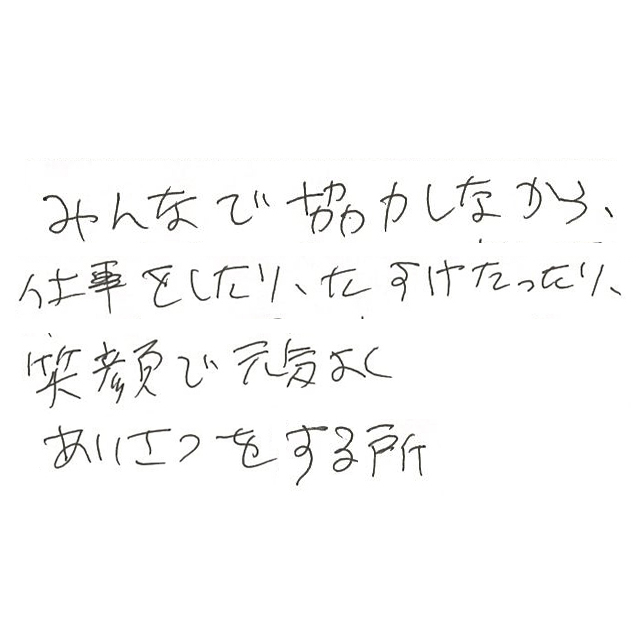 みんなで協力しながら、
仕事をしたり、たすけたったり、
笑顔で元気よく
あいさつをする所